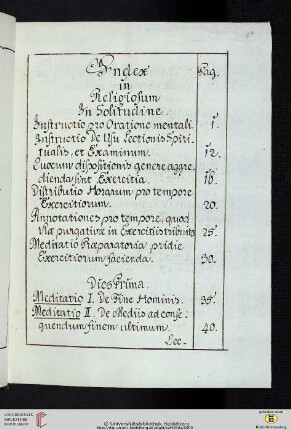 Index
Pag.
in
Religiosum
In Solitudine.
Instructio pro Oratione mentali. 1.
Instructio De Usu Lectionis Spiri-
tualis, et Examinum. 12.
Quocum dispositionis genere aggre-
dienda sint Exercitia. 16.
Distributio Horarum pro tempore
Exercitiorum. 20.
Annotationes pro tempore, quod
Viæ purgativæ in Exercitiis tribuitur. 25.
Meditatio Præparatoria pridie
Exercitiorum facienda. 30.
Dies Prima.
Meditatio I. De Fine Hominis. 35.
Meditatio II. De Mediis ad conse-
quendum finem ultimum. 40.
Lec-
UNIVERSITÄTS-
BIBLIOTHEK
HEIDELBERG
© Universitätsbibliothek Heidelberg